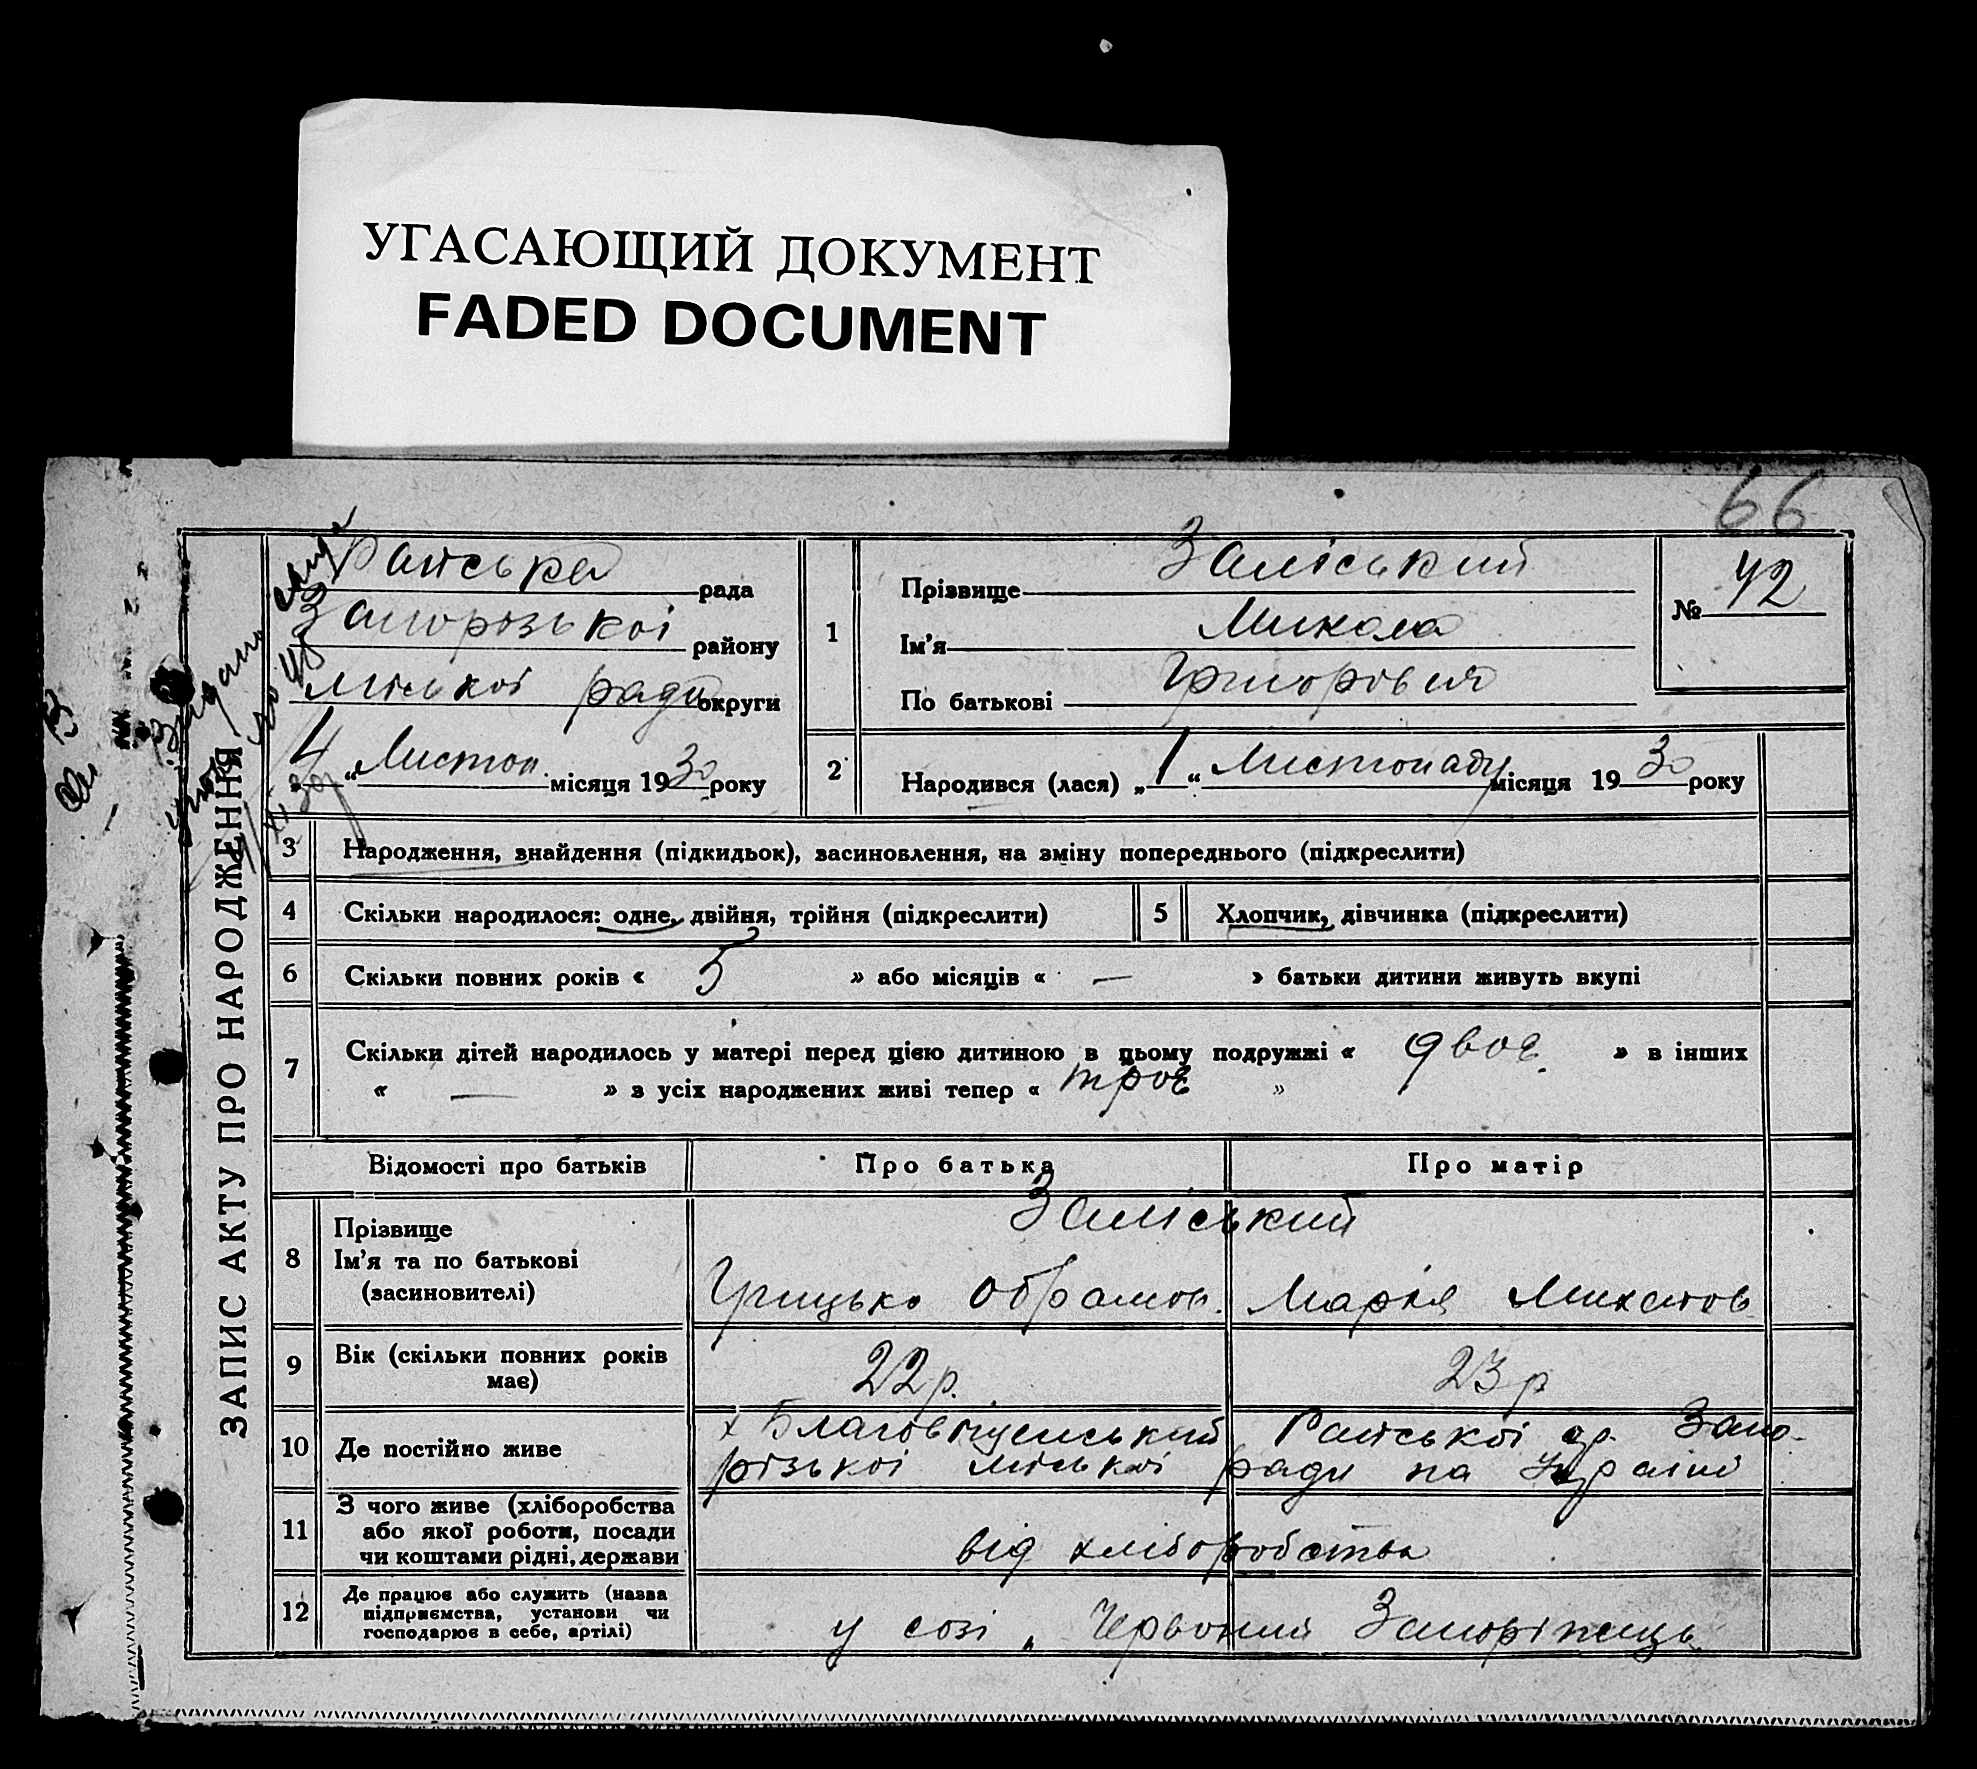 УГАСАЮЩИЙ ДОКУМЕНТ
FADED DOCUMENT
66
ЗАПИС АКТУ ПРО НАРОДЖЕННЯ
Видано
Райська рада
Запорозької району
міської ради округи
4 "Листоп. місяця 1930 року
1
Прізвище Заліський
Ім'я Микола
По батькові Григорович
№ 42
2
Народився (лася) „1“ Листопаду місяця 1930 року
3 Народження, знайдення (підкидьок), засиновлення, на зміну попереднього (підкреслити)
4 Скільки народилося: одне, двійня, трійня (підкреслити)
5 Хлопчик, дівчинка (підкреслити)
6 Скільки повних років « 5 » або місяців « — » батьки дитини живуть вкупі
7 Скільки дітей народилось у матері перед цією дитиною в цьому подружжі « двоє » в інших
« — » з усіх народжених живі тепер « троє »
Відомості про батьків Про батька Про матір
8 Прізвище
Ім'я та по батькові
(засиновителі)
Заліський
Грицько Обрамов. Марія Михайлов
9 Вік (скільки повних років
має)
22 р. 23 р
10 Де постійно живе
х Благовіщенський Райської с/р. Запо-
різької міської ради на Україні
11 З чого живе (хліборобства
або якої роботи, посади
чи коштами рідні, держави
від хліборобства
12 Де працює або служить (назва
підприємства, установи чи
господарює в себе, артілі)
у созі „ Червоний Запоріжець